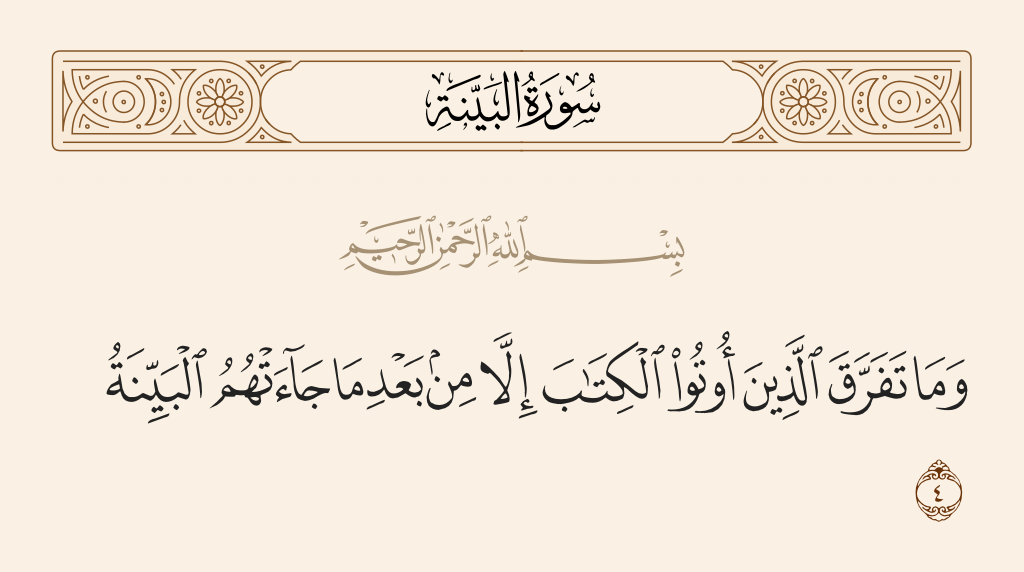 سُورَةُ البَيِّنَةِ
بِسْمِ ٱللَّهِ ٱلرَّحْمَٰنِ ٱلرَّحِيمِ
وَمَا تَفَرَّقَ ٱلَّذِينَ أُوتُوا۟ ٱلْكِتَـٰبَ إِلَّا مِنۢ بَعْدِ مَا جَآءَتْهُمُ ٱلْبَيِّنَةُ
٤